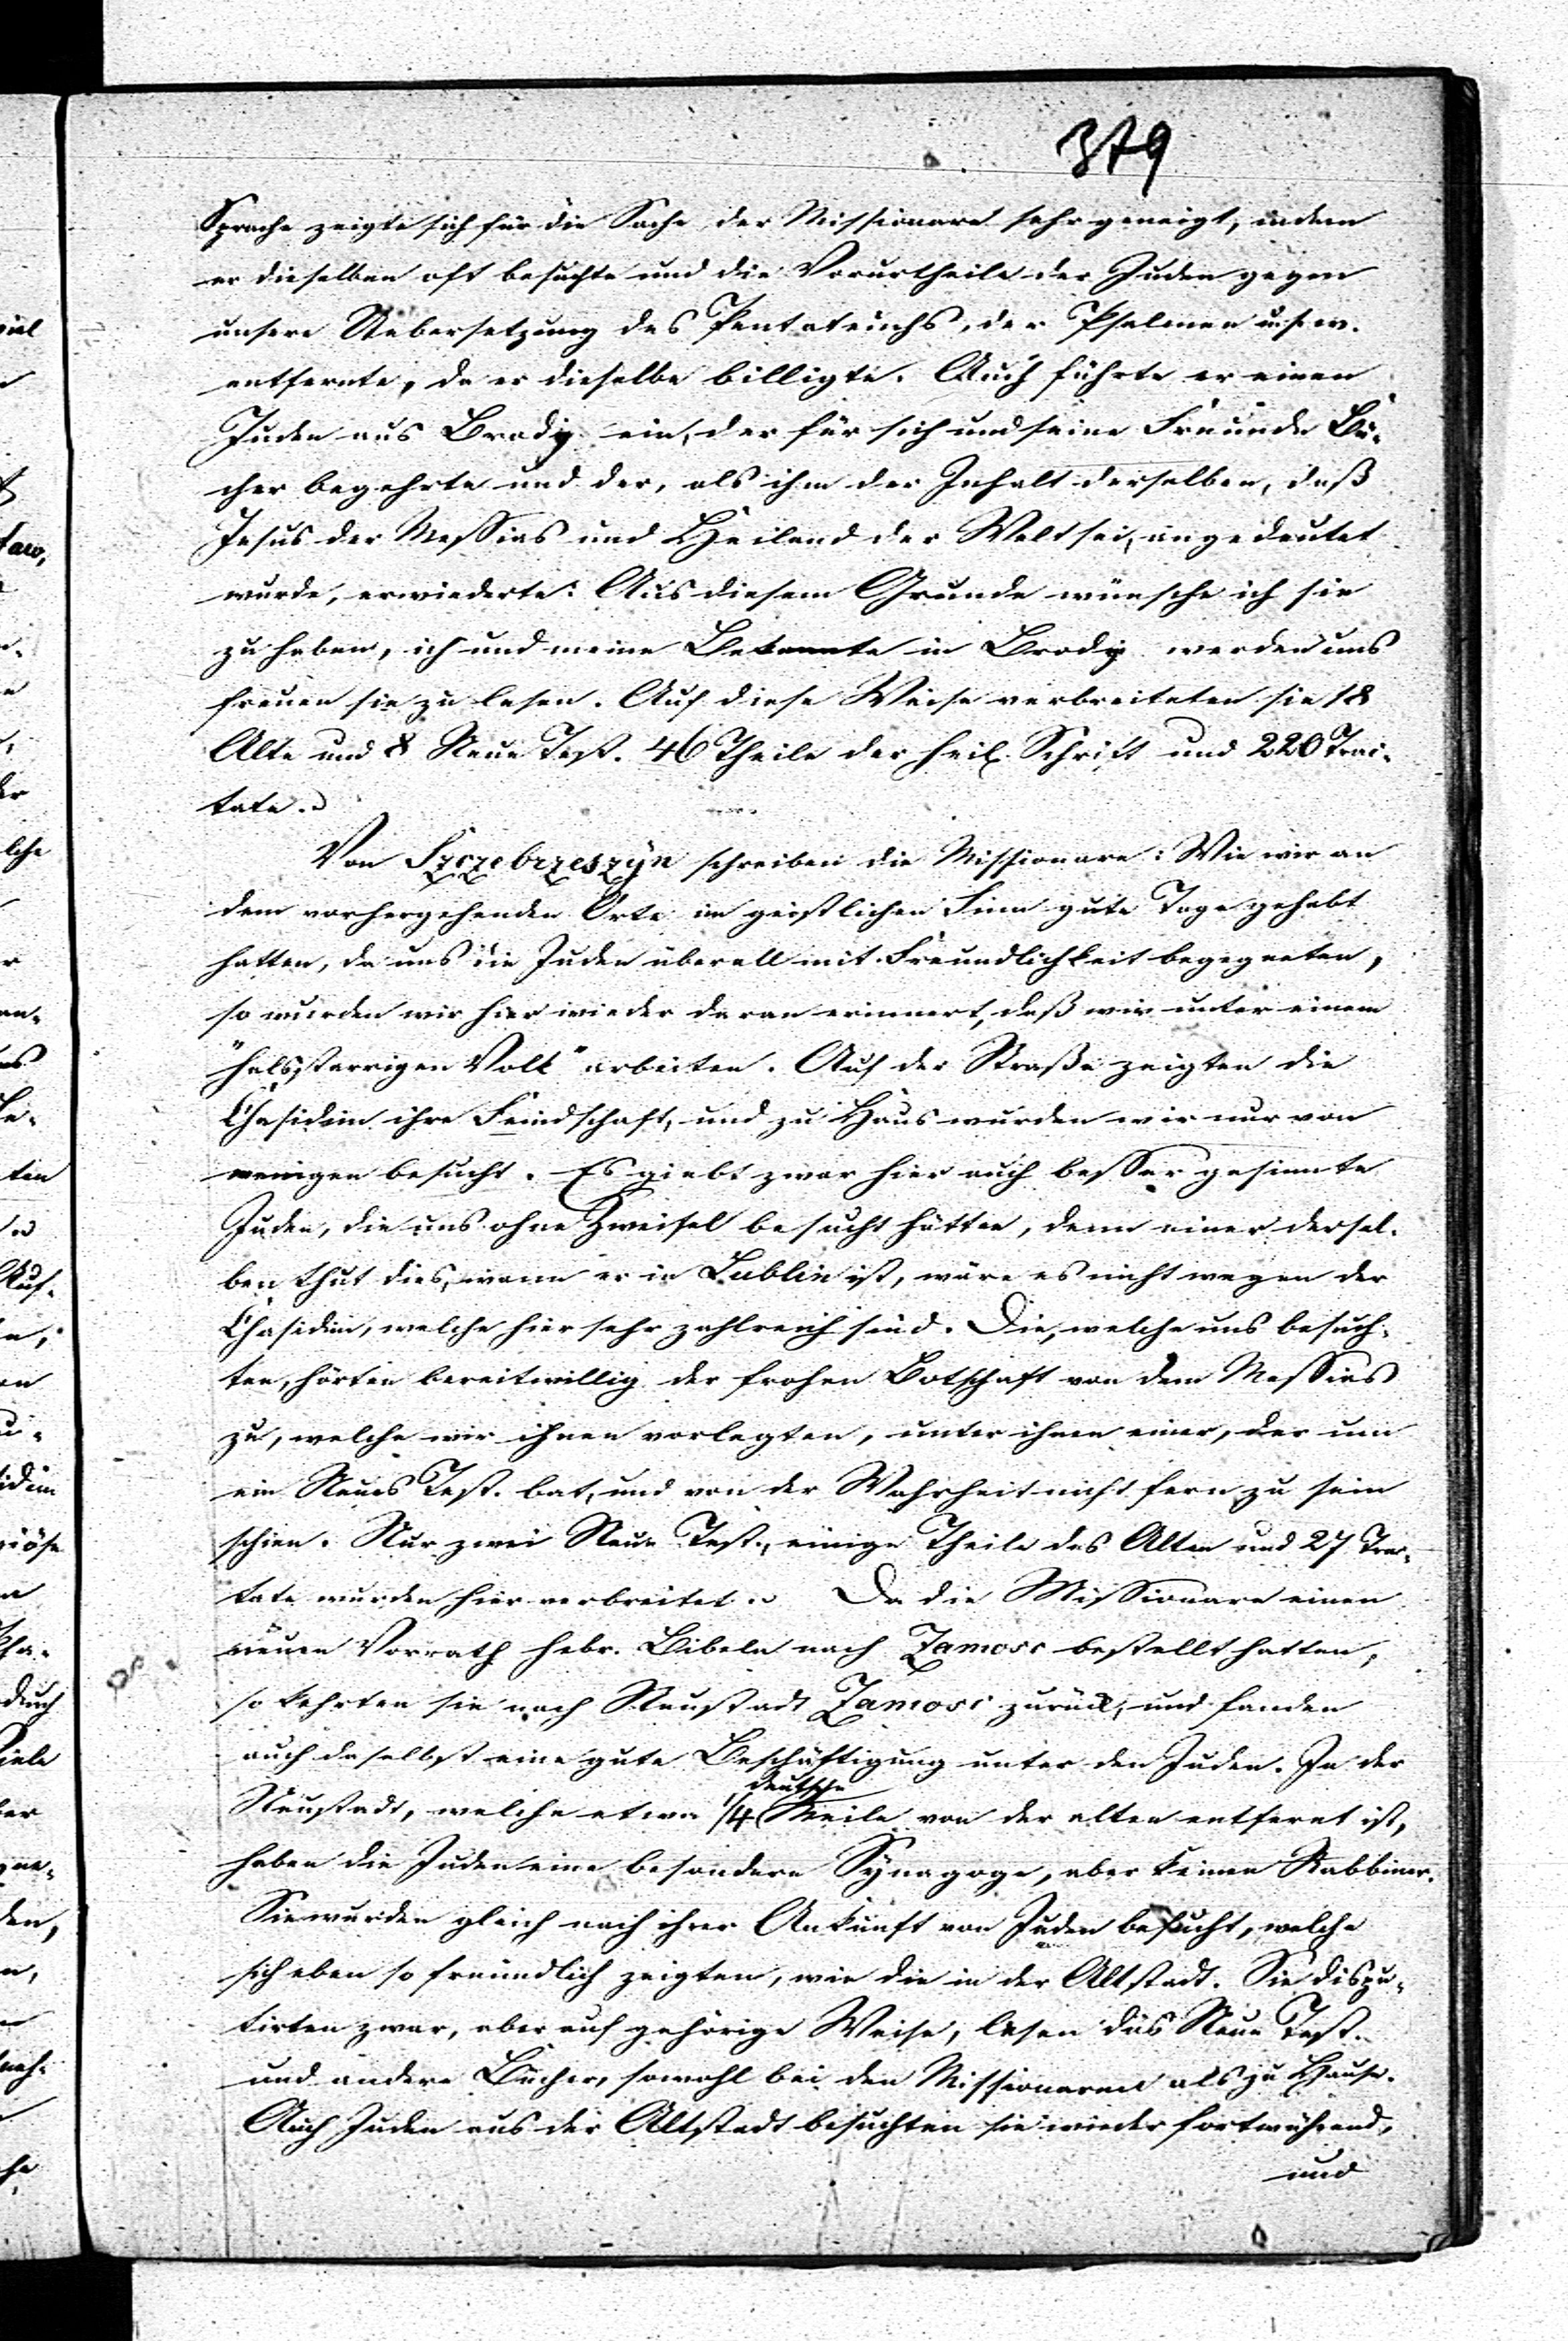 379
Sprache zeigte sich für die Sache der Missionare sehr geneigt, indem
er dieselben oft besuchte und die Vorurtheile der Juden gegen
unsere Uebersetzung des Pentateuchs, der Psalmen u.s.w.
entfernte, da er dieselbe billigte. Auch führte er einen
Juden aus Brody ein, der für sich und seine Freunde Bü-
cher begehrte und der, als ihm der Inhalt derselben, daß
Jesus der Messias und Heiland der Welt sei, angedeutet
wurde, erwiederte: Aus diesem Grunde wünsche ich sie
zu haben, ich und meine Bekannte in Brody werden uns
freuen sie zu lesen. Auf diese Weise verbreiteten sie 18
Alte und 8 Neue Test. 46 Theile der heil. Schrift und 220 Trac-
tate.
Von Szczebrzeszyn schreiben die Missionare: Wie wir an
dem vorhergehenden Orte im geistlichen Sinn gute Tage gehabt
hatten, da uns die Juden überall mit Freundlichkeit begegneten,
so wurden wir hier wieder daran erinnert, daß wir unter einem
"halsstarrigen Volk" arbeiten. Auf der Straße zeigten die
Chasidim ihre Feindschaft, und zu Haus wurden wir nur von
wenigen besucht. Es giebt zwar hier auch besser gesinnte
Juden, die uns ohne Zweifel besucht hätten, denn einer dersel-
ben thut dies, wann er in Lublin ist, wäre es nicht wegen der
Chasidim, welche hier sehr zahlreich sind. Die, welche uns besuch-
ten, hörten bereitwillig der frohen Botschaft von dem Messias
zu, welche wir ihnen vorlegten, unter ihnen einer, der um
ein Neues Test. bat, und von der Wahrheit nicht fern zu sein
schien. Nur zwei Neue Test., einige Theile des Alten und 27 Trac-
tate wurden hier verbreitet. Da die Missionare einen
neuen Vorrath hebr. Bibeln nach Zamosc bestellt hatten,
so kehrten sie nach Neustadt Zamosc zurück, und fanden
auch daselbst eine gute Beschäftigung unter den Juden. In der
deutsche
Neustadt, welche etwa 1/4 Meile von der alten entfernt ist,
haben die Juden eine besondere Synagoge, aber keinen Rabbiner.
Sie wurden gleich nach ihrer Ankunft von Juden besucht, welche
sich eben so freundlich zeigten, wie die in der Altstadt. Sie dispu-
tirten zwar, aber auf gehörige Weise, lesen das Neue Test.
und andere Bücher, sowohl bei den Missionaren als zu Hause.
Auch Juden aus der Altstadt besuchten sie wieder fortwährend,
und